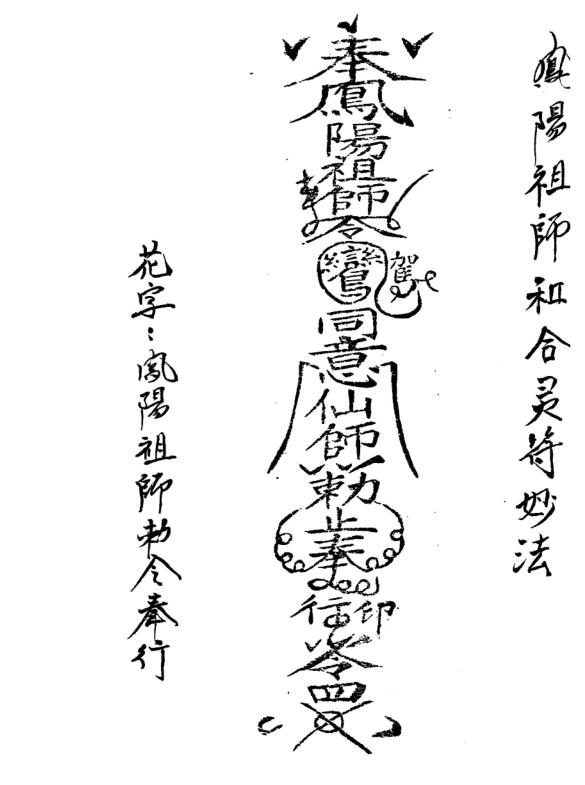 鳳陽祖師和合灵符妙法
奉鳳陽祖師令鸞駕同意仙師勅止奉行印令四
花字：鳳陽祖師勅令奉行